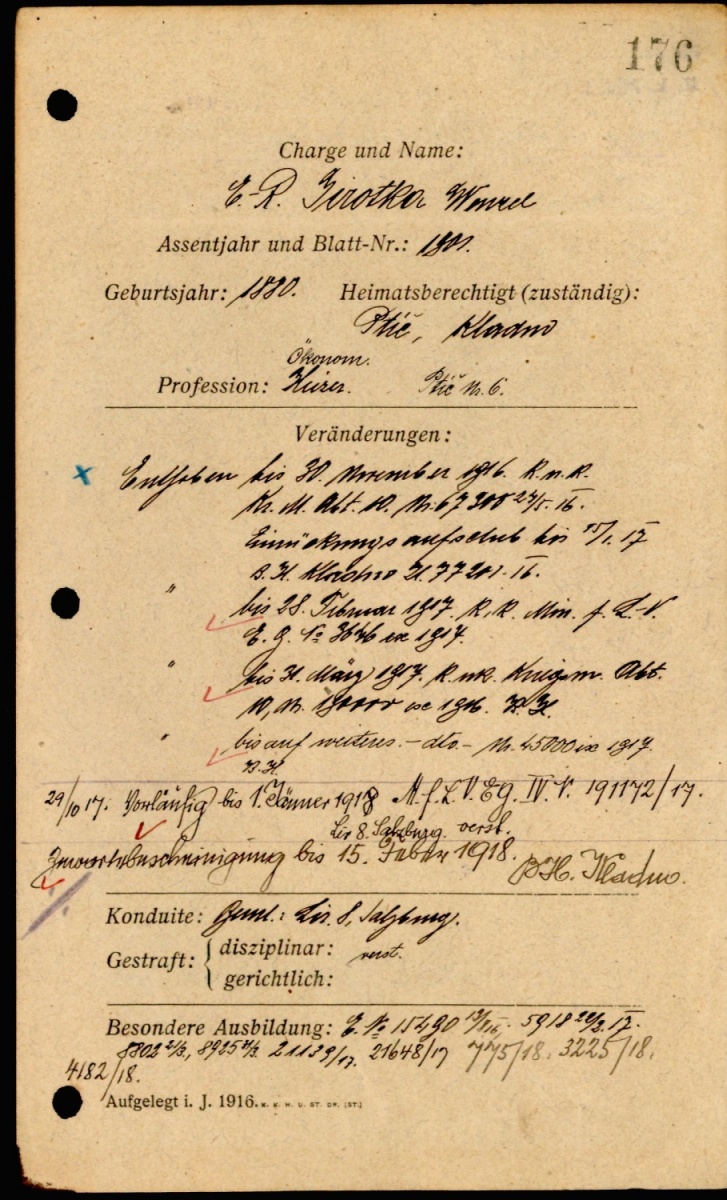 176
Charge und Name:
E.-R. Jirotka Wenzel
Assentjahr und Blatt-Nr.: 1901.
Geburtsjahr: 1880. Heimatsberechtigt (zuständig):
Ptič, Kladno
Ökonom.
Profession: Ptič Nr. 6.
Veränderungen:
Enthoben bis 30. November 1916. K. u. k.
Kr. M. Abt. 10. Nr. 67300 16.
Einrückungsaufschub bis 15/1. 17
B. H. Kladno Z. 77201. 16.
" bis 28. Februar 1917. k. k. Min. f. L. V.
E. g. No 3646 ex 1917.
" bis 31. März 1917. k. u. k. Kriegsm. Abt.
10, Nr. ex 1916. B. H.
" bis auf weiteres. - dto. - Nr. 45000 ex 1917.
B. H.
29/10 17. Vorläufig bis 1. Jänner 1918 M. f. L. V. Eg. IV. V. 191172/17.
Lir 8. Salzburg verst.
bis 15. Feber 1918. B H. Kladno.
Konduite: Lir. 8, Salzburg.
Gestraft: disziplinar: verst.
gerichtlich:
Besondere Ausbildung: E. No 15490 5918
8802 8925 21139/17. 21648/17 775/18. 3225/18.
4182/18.
Aufgelegt i. J. 1916. K. K. H. U. ST. DR. (ST.)